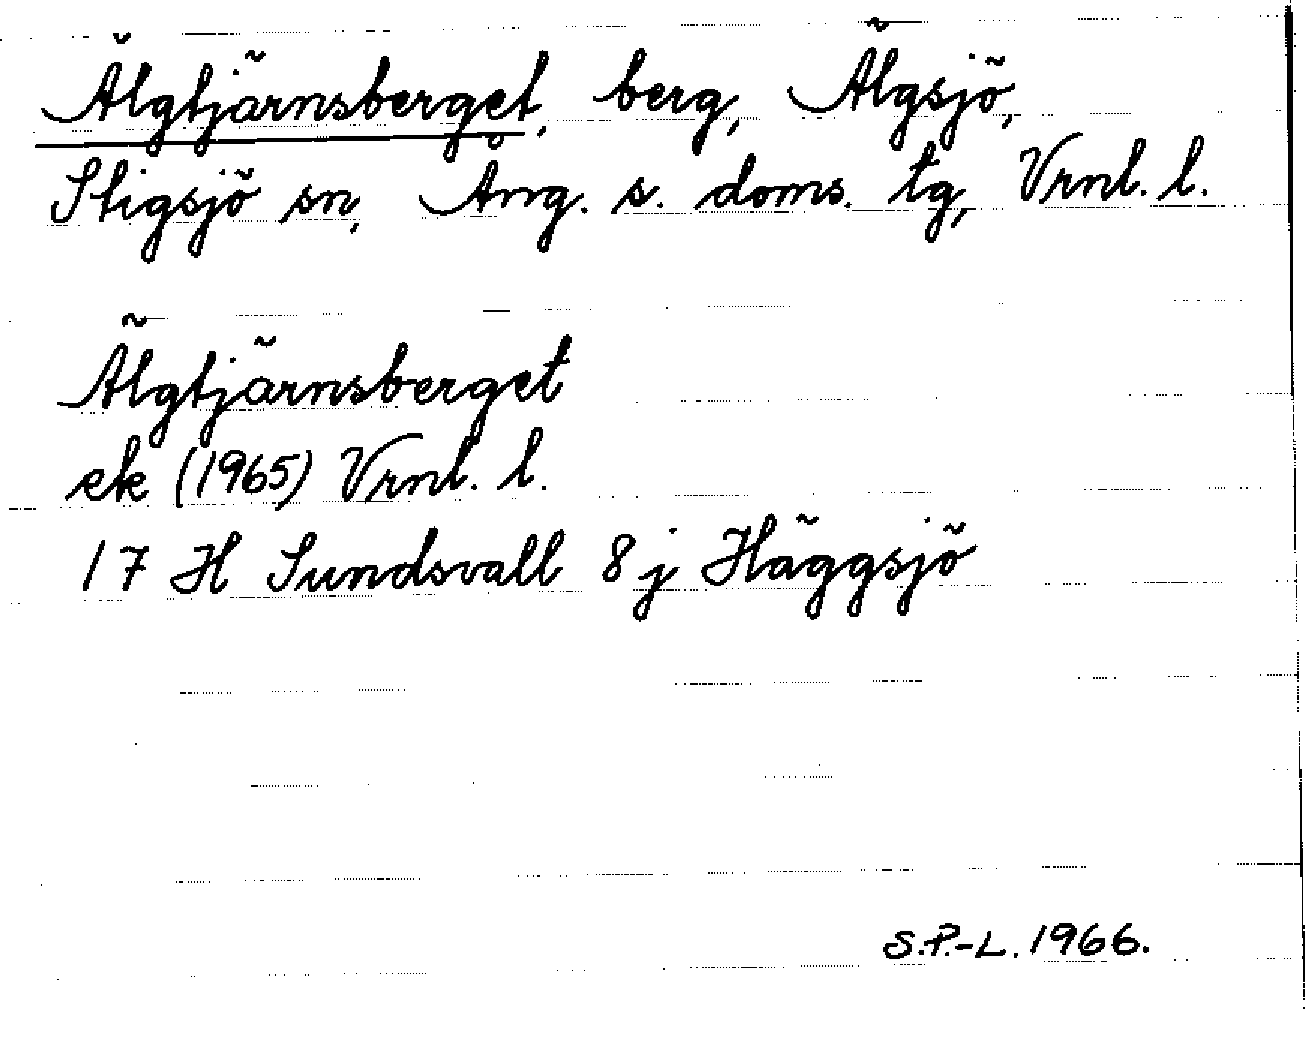 Älgtjärnsberget, berg, Älgsjö,
Stigsjö sn, Ång. s. doms. tg, Vrnl. l.
Älgtjärnsberget
ek (1965) Vrnl. l.
17 H Sundsvall 8 j Häggsjö
S.P.-L. 1966.